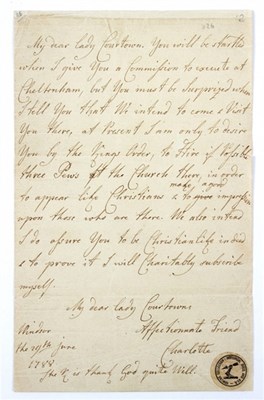 My dear Lady Courtown. You will be startled
when I give You a Commission to execute at
Cheltenham, but You must be Surprized when
I tell You that We intend to come & Visit
You there, at Present I am only to desire
You by the Kings Order, to Hire if Possible
three Pews at the Church there, in order
make, a good
to appear like Christians & to give impression
upon those who are there. We also intend
I do assure You to be Christianlike indeed
& to prove it I will Charitably subscribe
myself.
My dear Lady Courtowns
Windsor
Affectionate Friend
the 29th June
Charlotte
1788
The K is thank God quite Well.